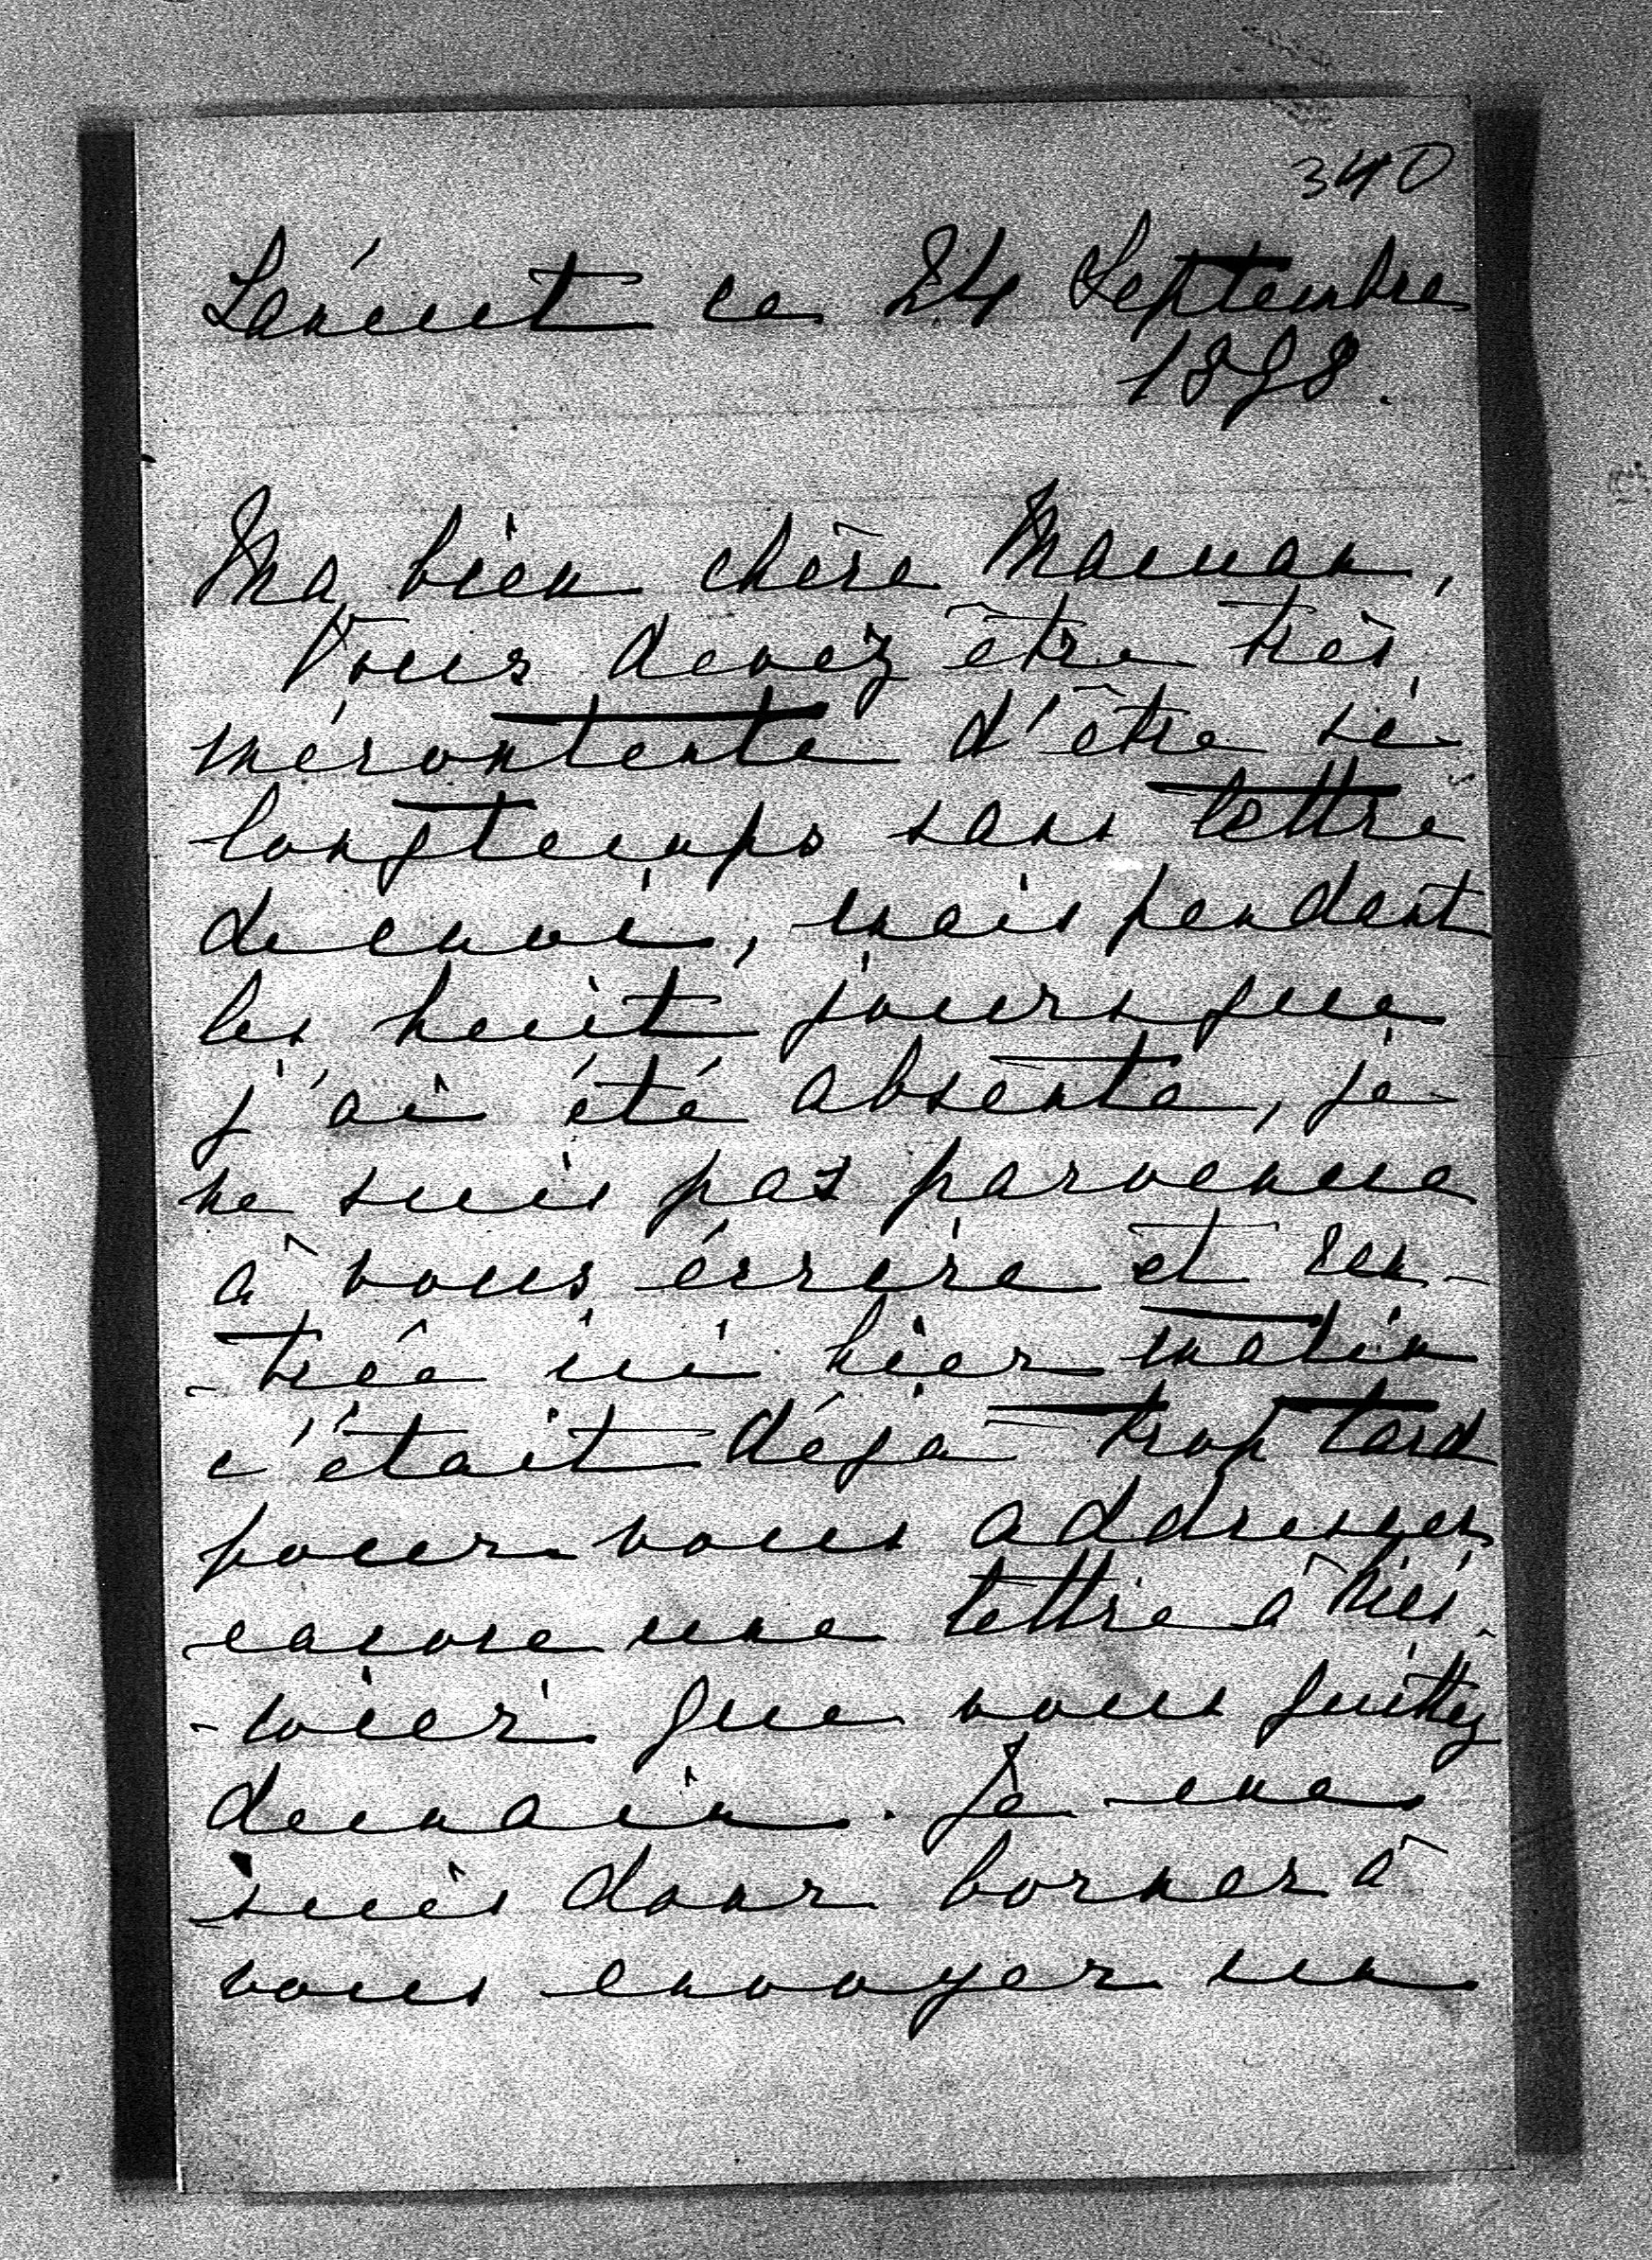 340
Lancut ce 24 Septembre
1898.
Ma bien chère Maman,
Vous devez être très
mécontente d'être si
longtemps sans lettre
de moi, mais pendant
les huit jours que
j'ai été absente, je
ne suis pas parvenue
à vous écrire et ren-
-trée ici hier matin
c'était déja trop tard
pour vous addresser
encore une lettre à
que vous quittez
demain. Je me
suis donc borner à
vous envoyer un